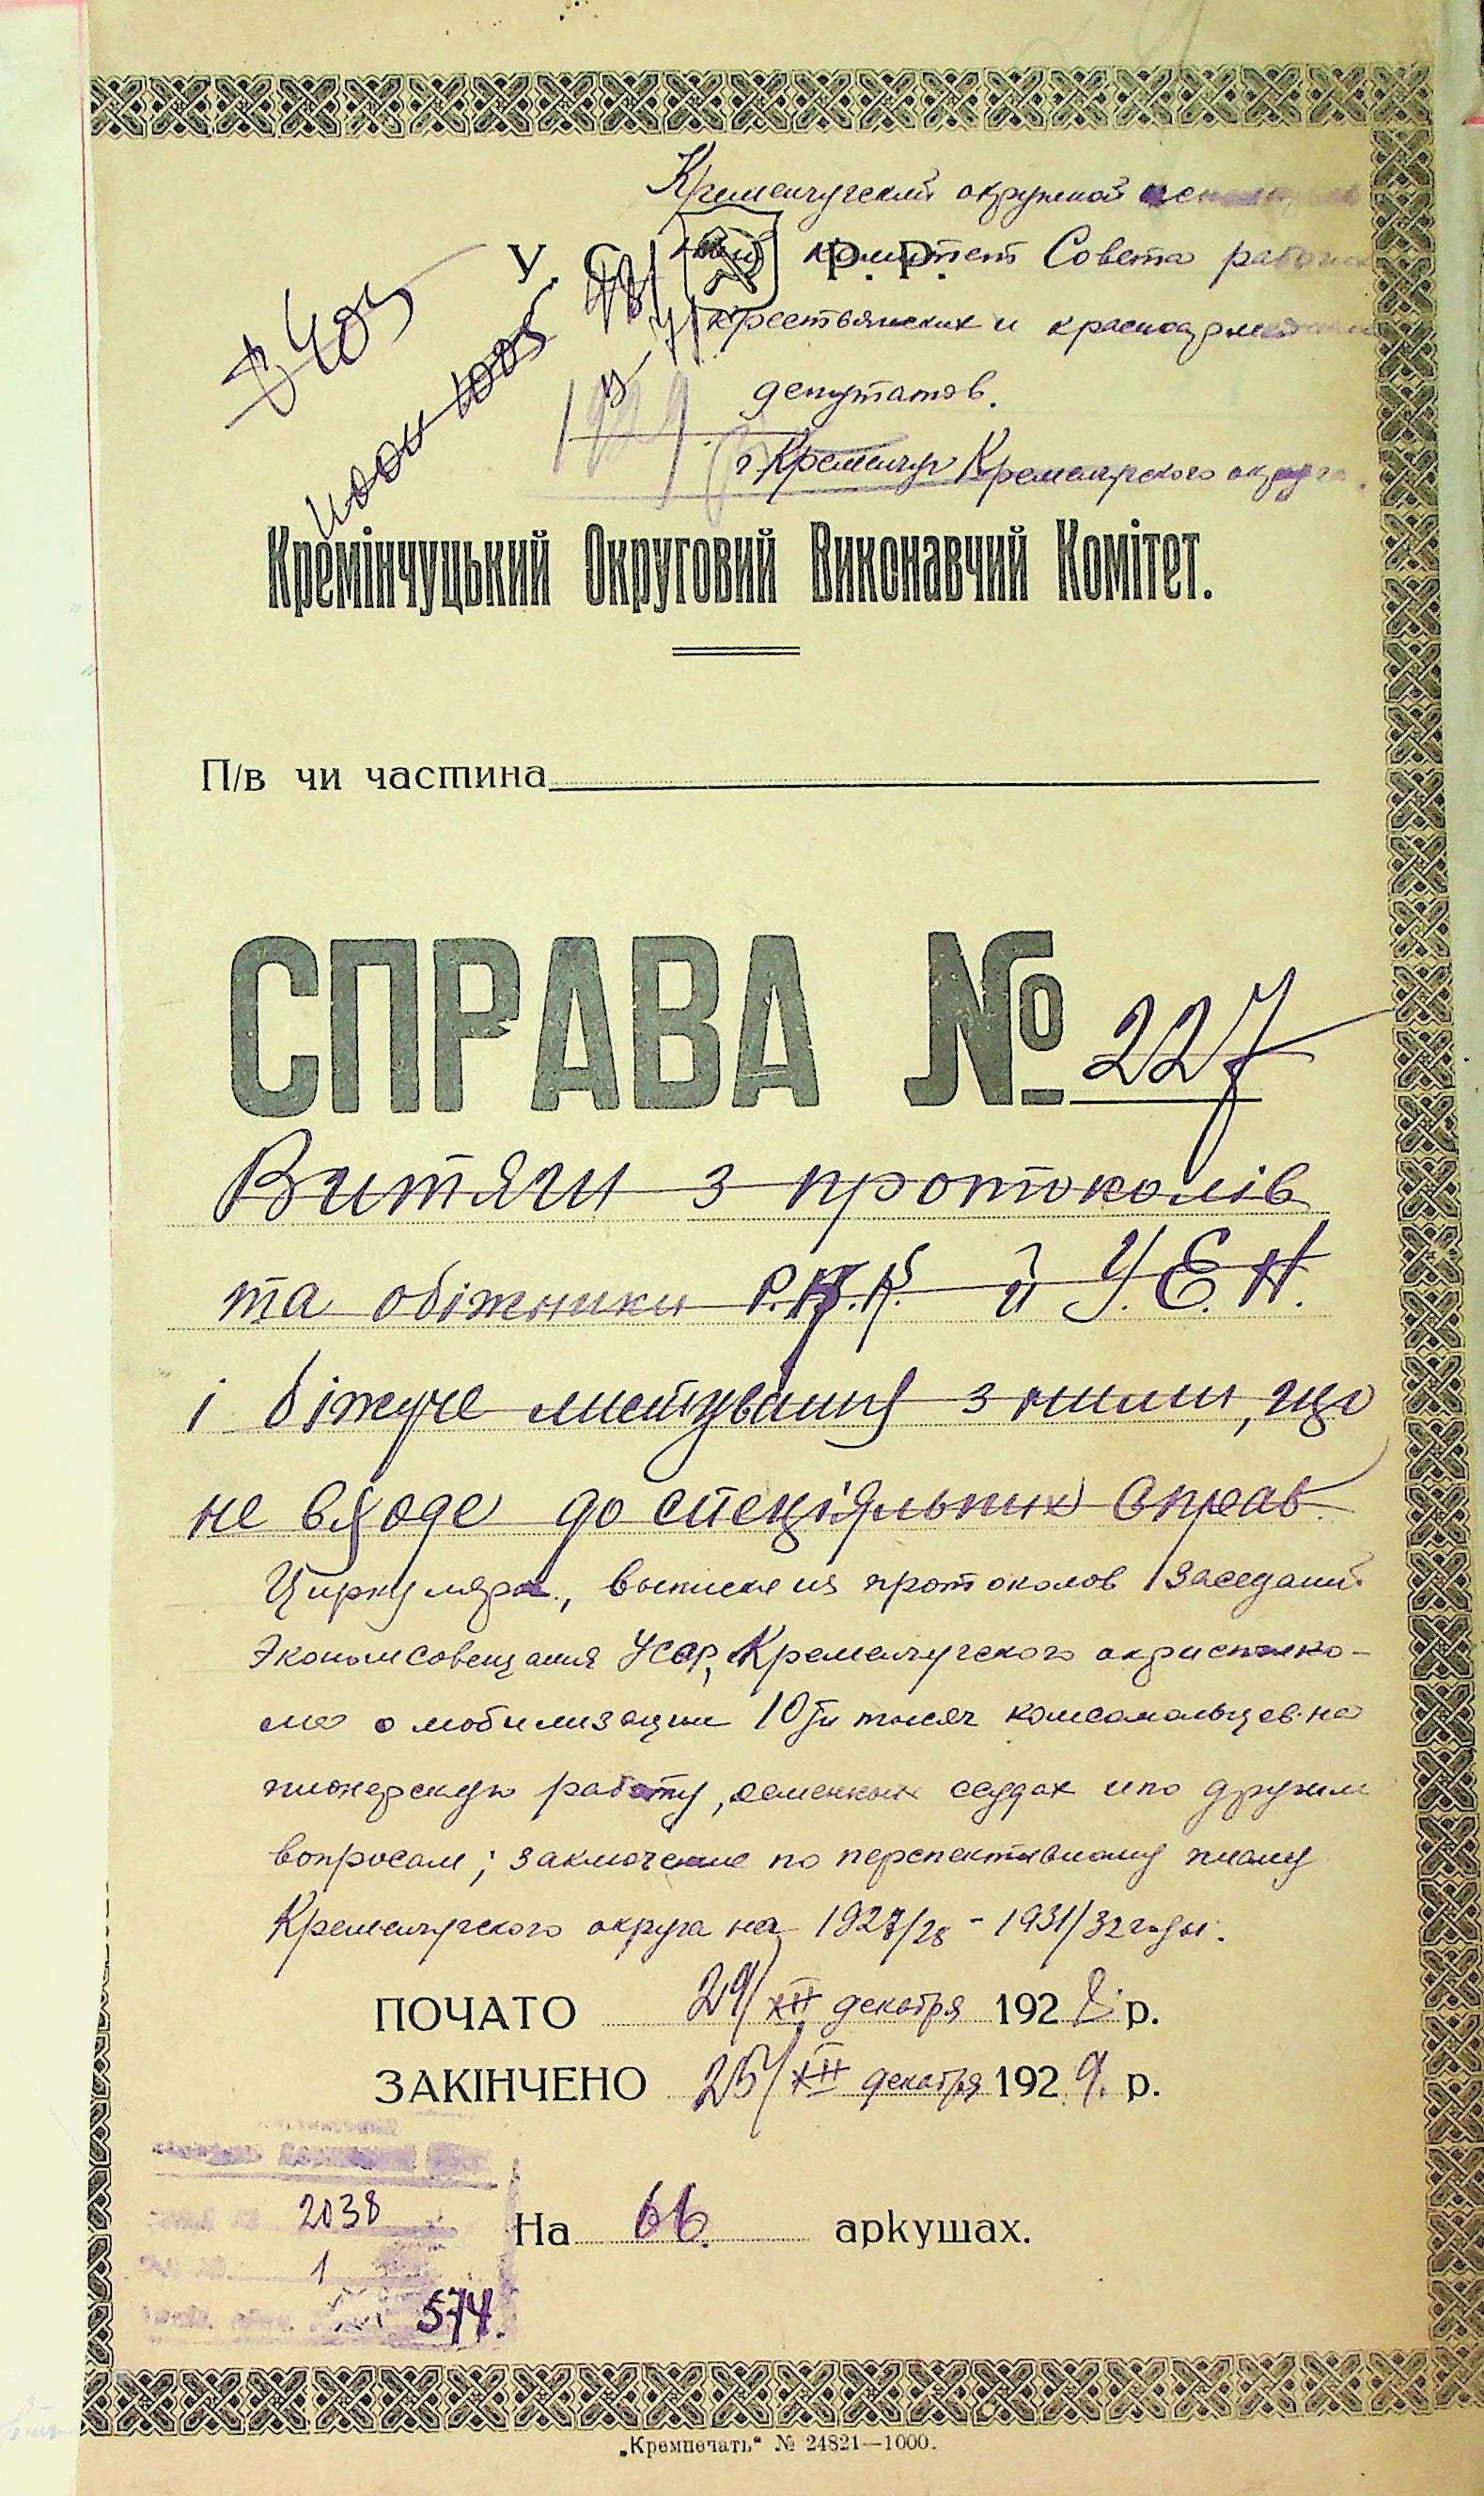 Кременчугский окружной исполнитель
ный комитет Совета рабочих
У. С. Р. Р.
крестьянских и красноармейских
депутатов.
1929
г. Кременчуг Кременчугского округа.
Кремінчуцький Округовий Виконавчий Комітет.
П/в чи частина
СПРАВА № 227
Витяги з протоколів
та обіжники Р.Н.К. й У.Е.Н.
і біжуче листування з ними, що
не входе до спеціяльних справ.
Циркуляры, выписки из протоколов заседаний
Экономсовещания УССР, Кременчугского окрисполко-
ма о мобилизации 10ти тысяч комсомольцев на
пионерскую работу, семенных ссудах и по другим
вопросам; заключение по перспективному плану
Кременчугского округа на 1927/28 - 1931/32 годы.
ПОЧАТО 29/XII декабря 1928 р.
ЗАКІНЧЕНО 25/XII декабря 1929. р.
2038
На 66. аркушах.
1
574.
„Кремпечать“ № 24821—1000.